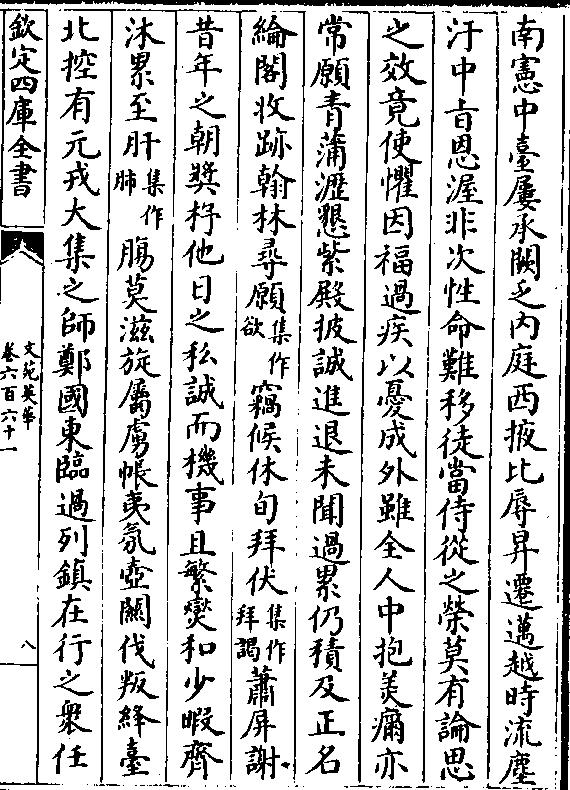 南憲中臺屢承闕乏内庭西掖比辱昇遷邁越時流塵
汙中旨恩渥非次性命難移徒當侍從之榮莫有論思
之效竟使懼因福過疾以憂成外雖全人中抱美瘤亦
常願青蒲瀝懇紫殿披誠進退未聞過累仍積及正名
綸閣收跡翰林尋願集作欲竊候休旬拜伏集作拜謁蕭屏謝
昔年之朝獎杼他日之私誠而機事且繁爕和少暇齊
沐累至肝集作肺腸莫滋旋屬虜帳夷氛壺關伐叛絳臺
北控有元戎大集之師鄭國東臨過列鎮在行之衆任
欽定四庫全書
文苑英華
卷六百六十一
八